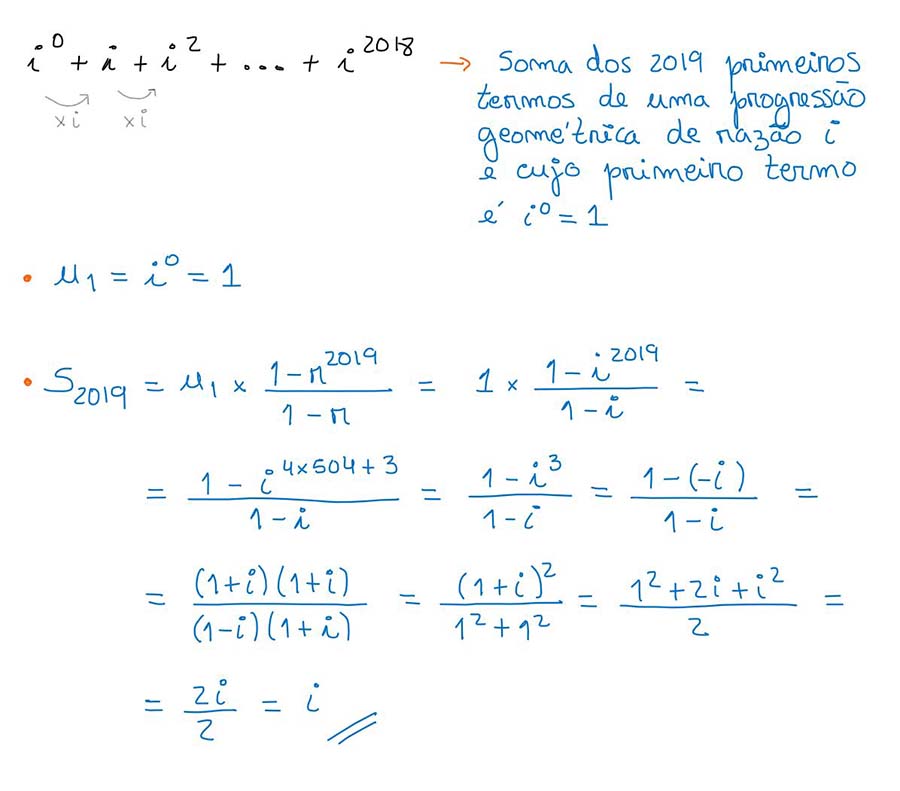 i⁰ + i + i² + ... + i²⁰¹⁸ → Soma dos 2019 primeiros
xi xi
termos de uma progressão
geométrica de razão i
e cujo primeiro termo
é i⁰ = 1
• u₁ = i⁰ = 1
• S₂₀₁₉ = u₁ × (1 - r²⁰¹⁹)/(1 - r) = 1 × (1 - i²⁰¹⁹)/(1 - i) =
= (1 - i⁴ˣ⁵⁰⁴⁺³)/(1 - i) = (1 - i³)/(1 - i) = (1 - (-i))/(1 - i) =
= ((1+i)(1+i))/((1-i)(1+i)) = (1+i)²/(1² + 1²) = (1² + 2i + i²)/2 =
= 2i/2 = i